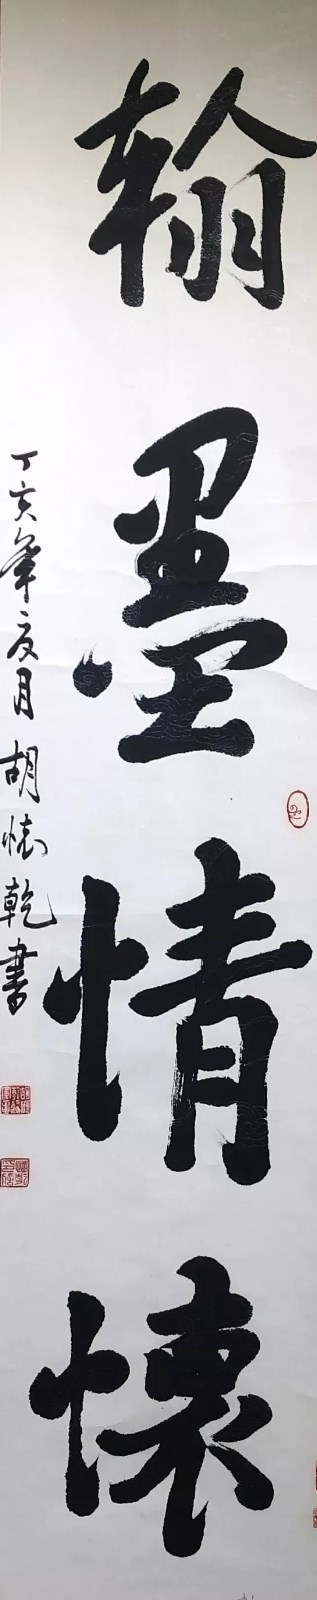 翰墨情懷
丁亥年夏月胡懷乾書